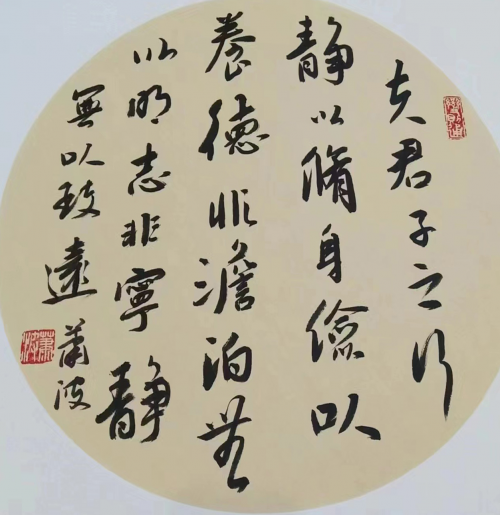 夫君子之行
静以脩身儉以
養德非澹泊無
以明志非寧静
無以致遠 蕭波